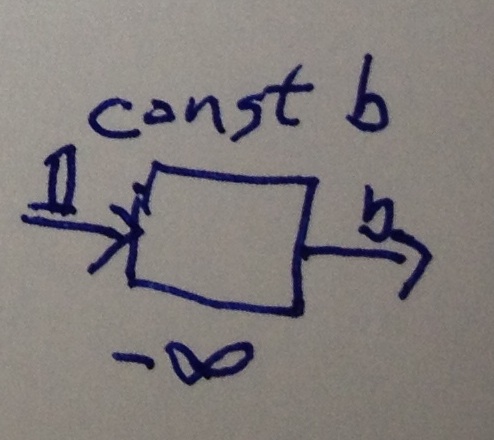 const b
b
-∞